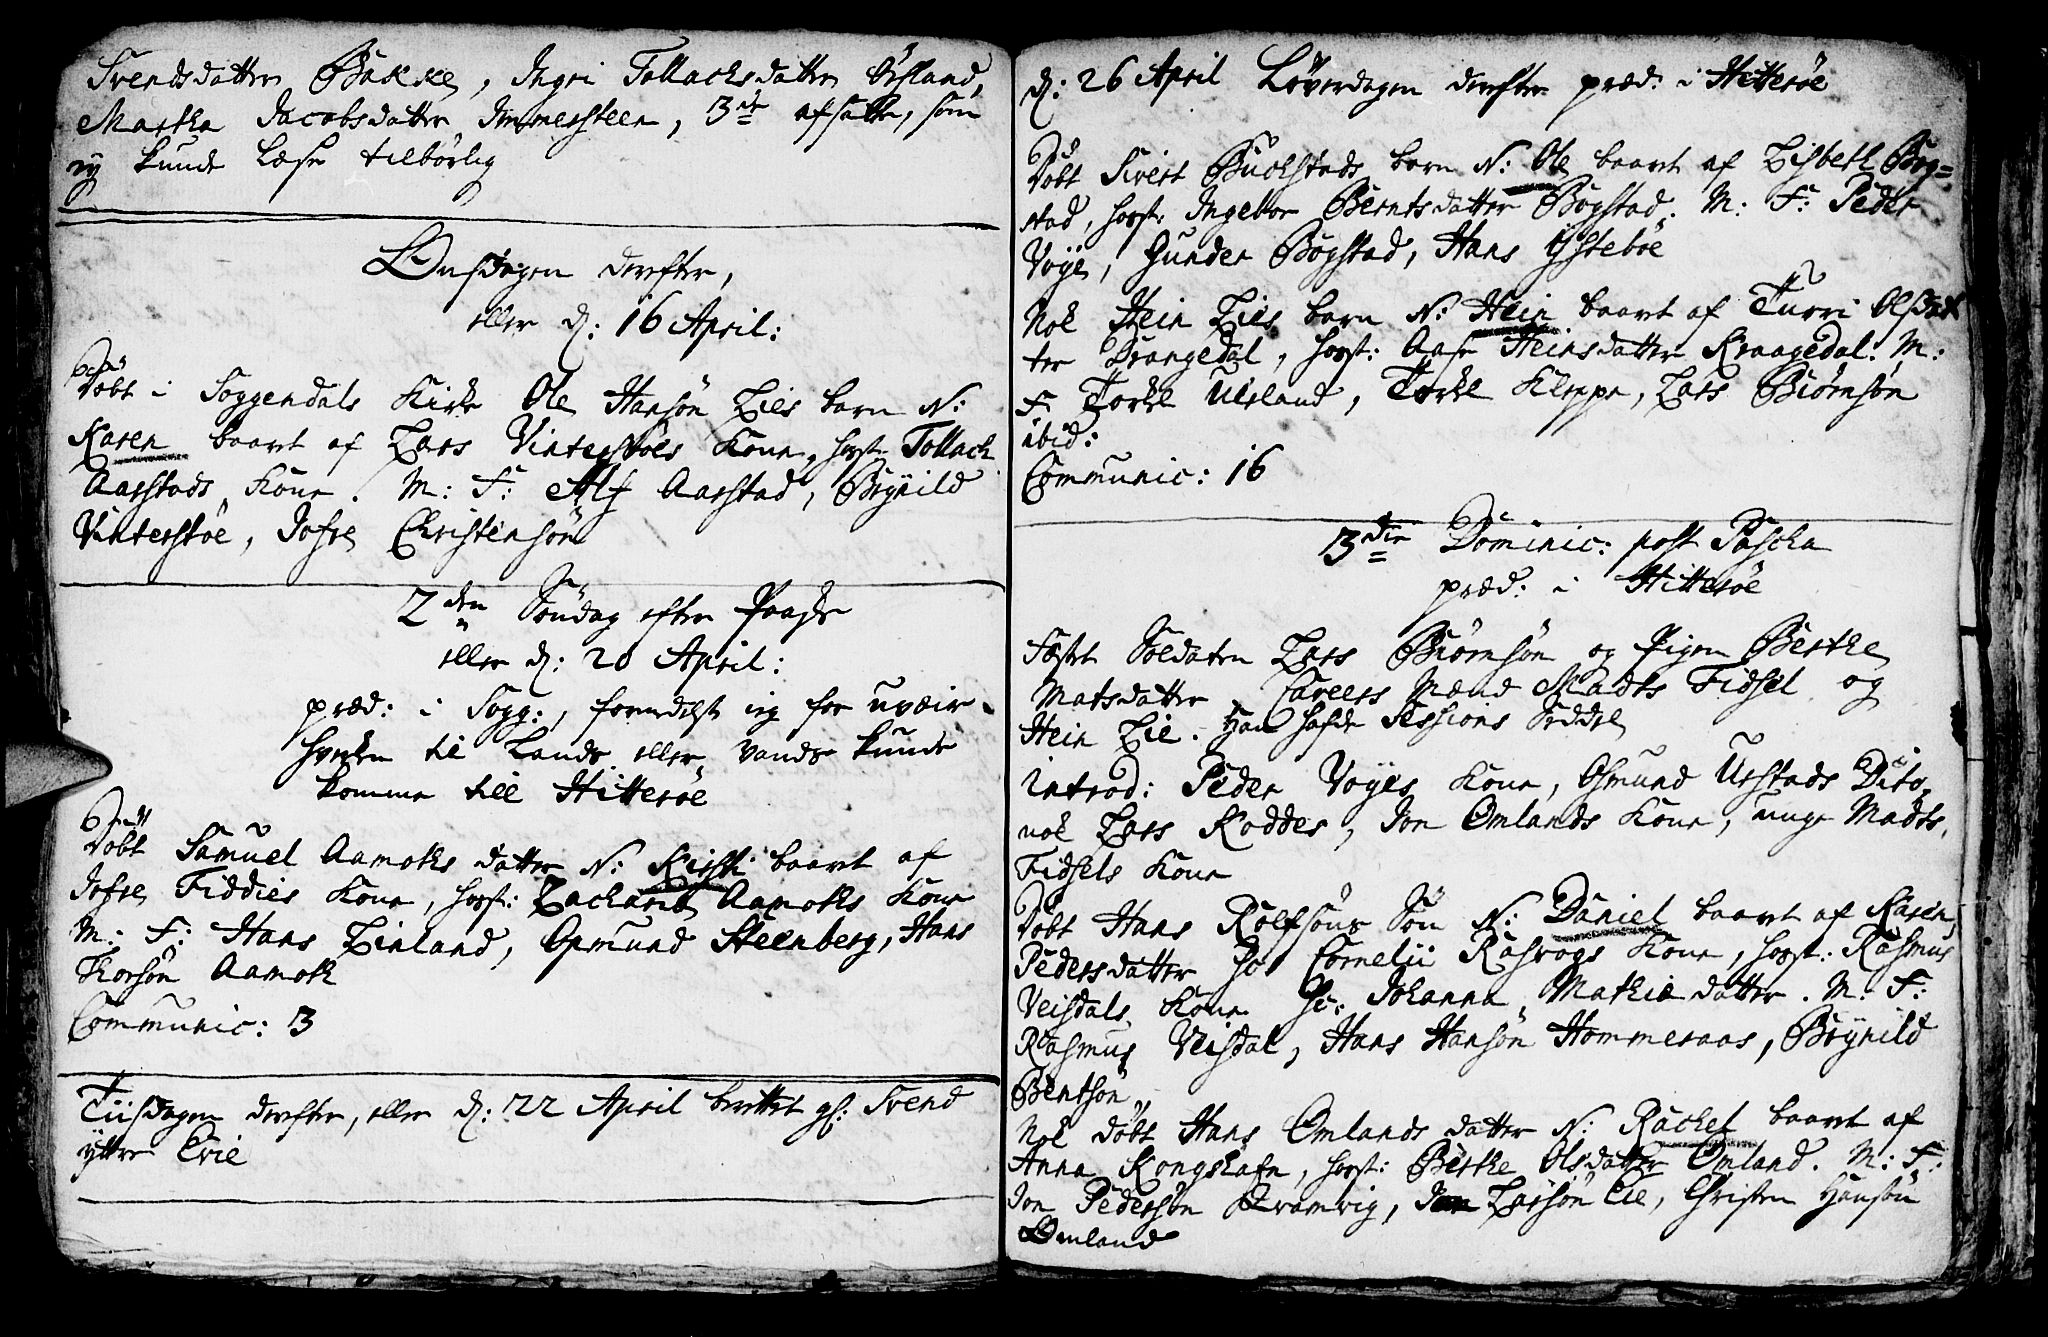 Svendsdatter Bakke, Ingri Tollachsdatter Örsland,
Martha Jacobsdatter Immersteen, 3de afsatte, som
ey kunde læse tilbörlig
Onsdagen derefter,
eller d: 16 April:
Döbt i Soggendals Kirke Ole Hansön Lies barn N:
Karen baaret af Lars Vinterstöes Kone, host: Tollach
Aarstads Kone. M: F: Alf Aarstad, Brynild
Vinterstöe, Jofre Christensön
2den Söndag efter Paaske
eller d: 20 April:
præd: i Sogg:, formedelst ieg for uveir
hverken til Lands eller Vands kunde
komme till Hitteröe
Döbt Samuel Aamoths datter N: Kirsti baaret af
Jofre Fiddies Kone, host: Zacharias Aamoths Kone
M: F: Hans Linland, Osmund Steenberg, Hans
Thorsön Aamoth
Communic: 3
Tiisdagen derefter, eller d: 22 April berettet gl: Svend
yttre Evie
d: 26 April Löverdagen derefter præd: i Hitteröe
Döbt Sivert Buchstads barn N: Ole baaret af Lisbeth Bog=
stad, host: Ingebor Berntsdatter Bogstad. M: F: Peder
Voye, Gunder Bogstad, Hans Ysteböe
Nok Hein Lies barn N: Hein baaret af Turri Olsdat
ter Drangedal, host: Aase Heinsdatter Kraagedal. M:
F. Torkel Uesland, Torkel Kleppe, Lars Biörnsön
ibid:
Communic: 16
3die Dominic: post Pascha
præd: i Hitteröe
Fæstet Soldaten Lars Biörnsön og Pigen Berthe
Matsdatter Caveers Mænd Madts Fidsel og
Hein Lie. Han hafde Sessions Seddel
Introd: Peder Voyes Kone, Osmund Urstads Dito,
nok Lars Roddes, Jon Omlands Kone, unge Madts
Fidsels Kone
Döbt Hans Rolfsöns Sön N: Daniel baaret af Karen
Pedersdatter sc: Cornelii Rasvogs Kone, host: Rasmus
Veisdals Kone sc: Johanna Mathiædatter. M: F:
Rasmus Veisdal, Hans Hansön Hommeraas, Brynild
Bentsön
Nok döbt Hans Omlands datter N: Rachel baaret af
Anna Kongshafn, host: Berthe Olsdatter Omland. M: F:
Jon Pedersön Qvamvig, Jon Larsön Eie, Christen Hansön
Omland